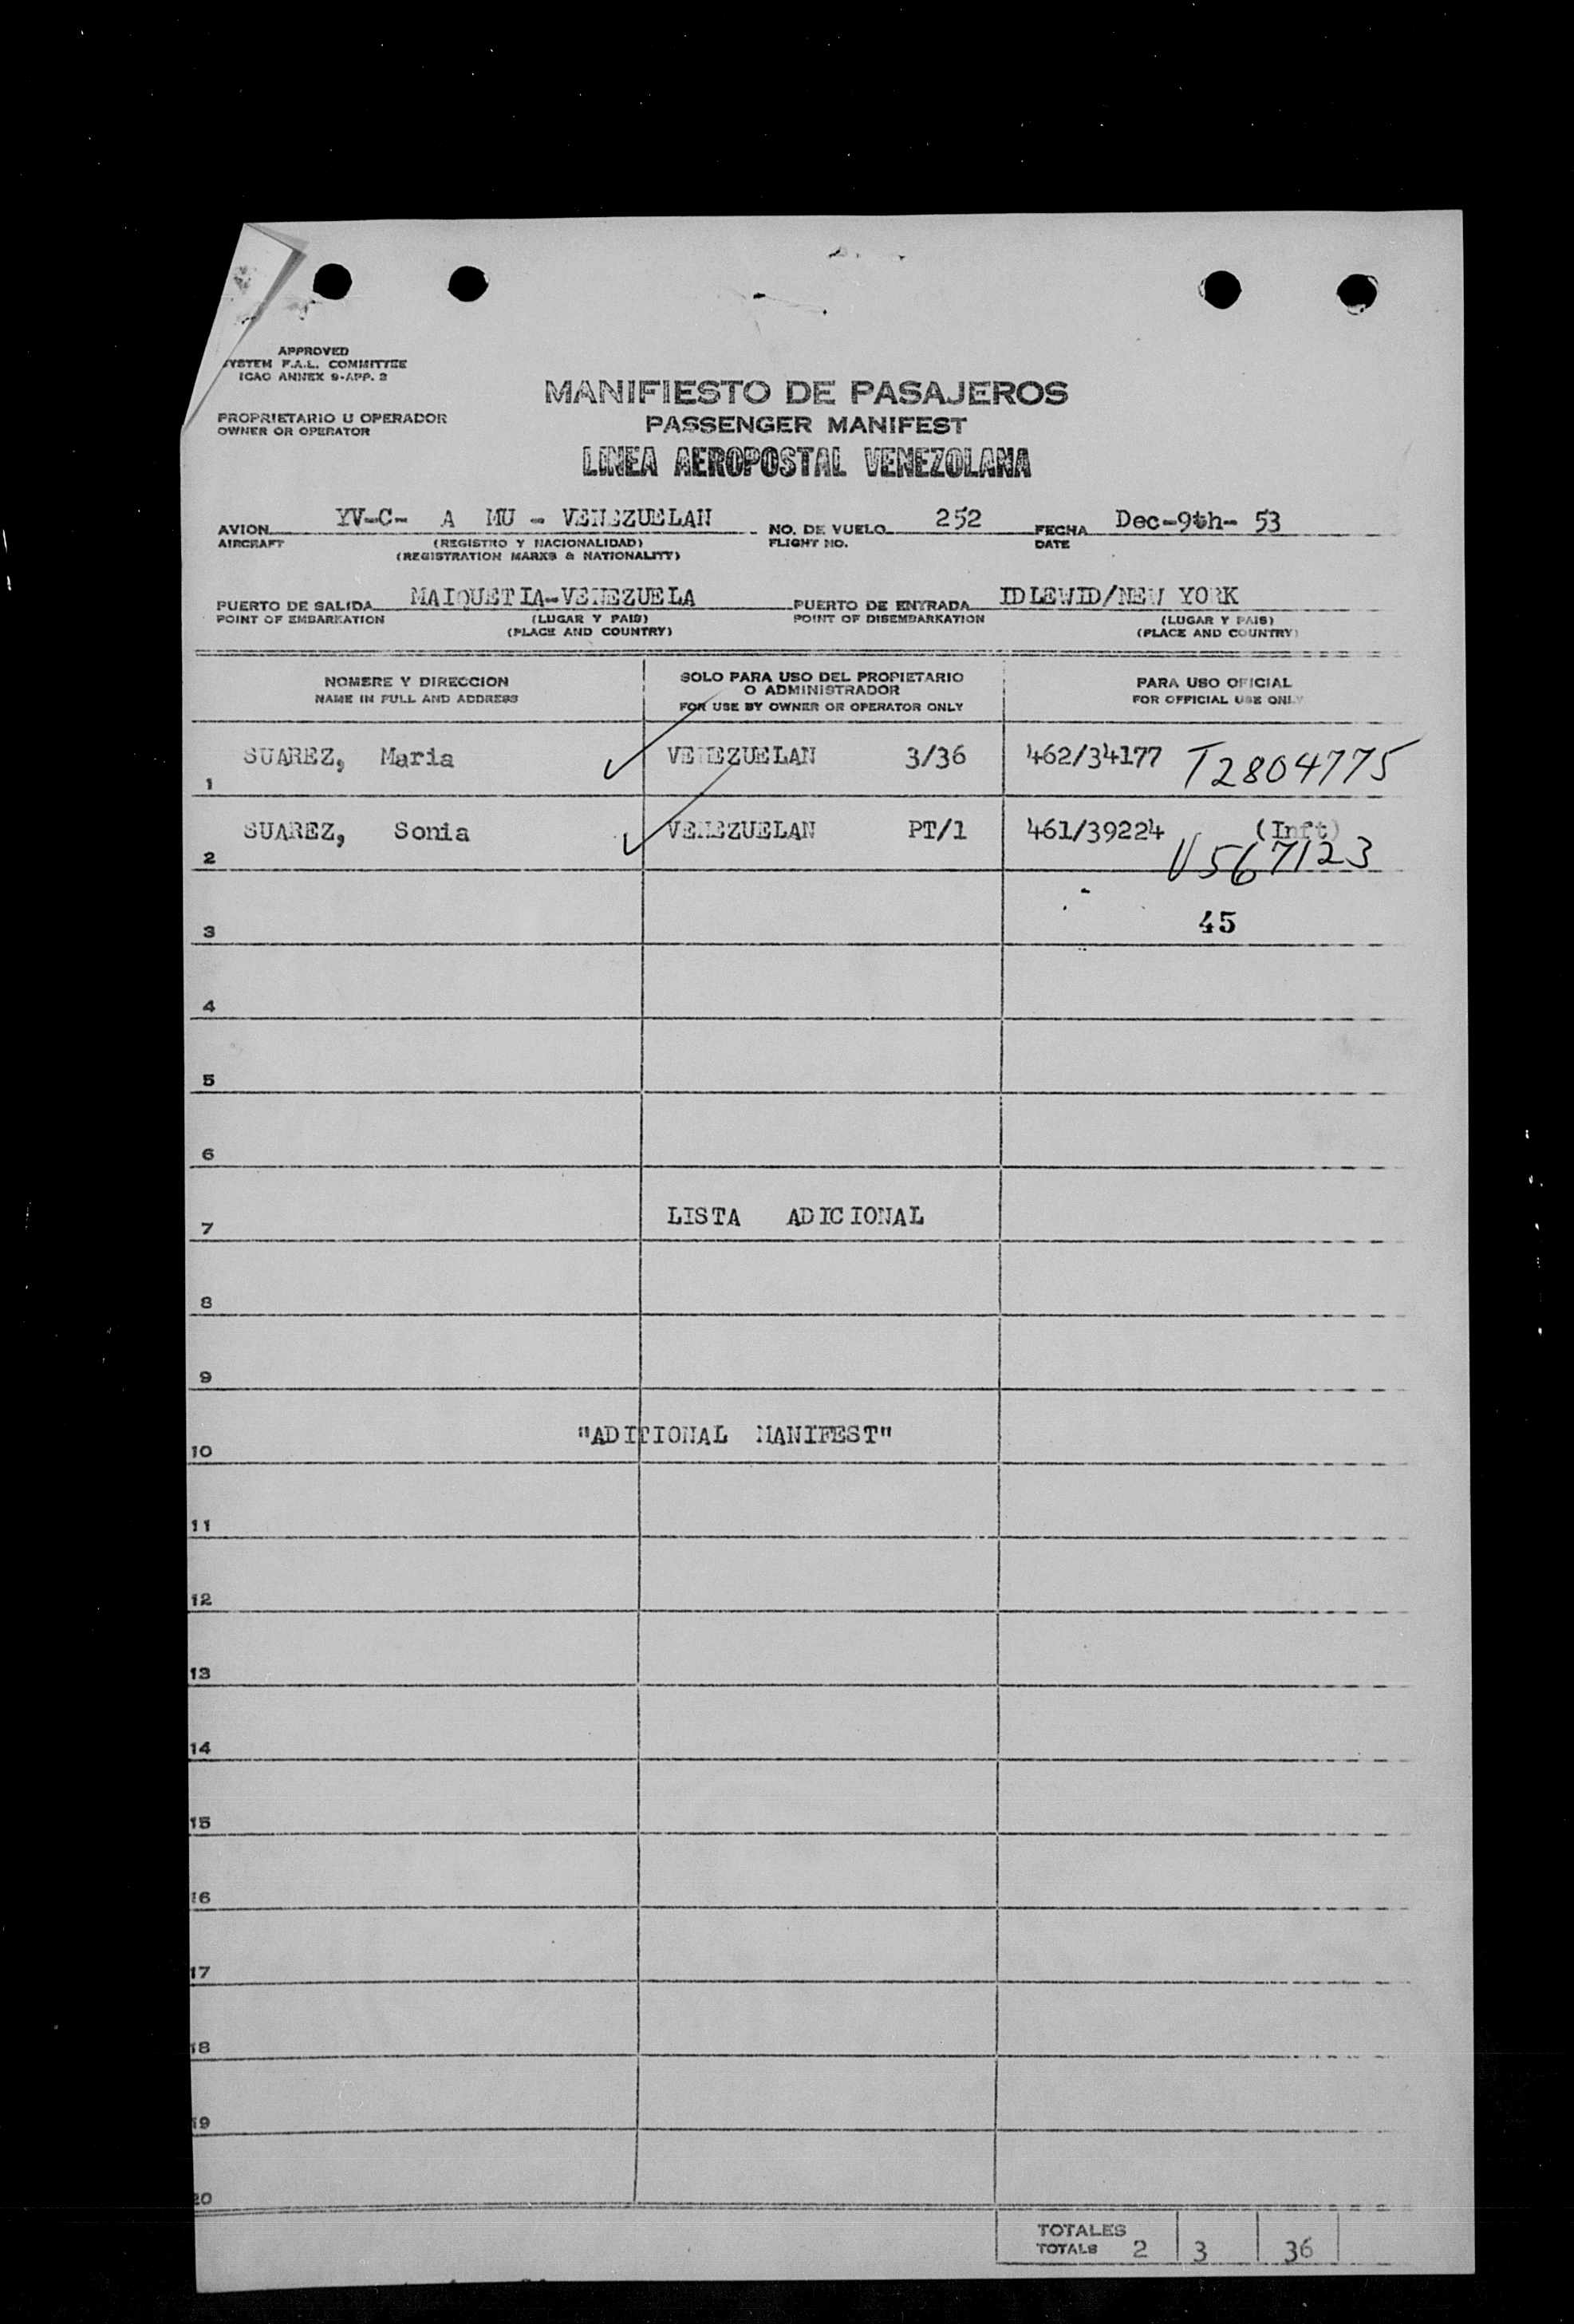 APPROVED
SYSTEM F.A.L. COMMITTEE
ICAO ANNEX 9-APP. 2
MANIFIESTO DE PASAJEROS
PROPRIETARIO U OPERADOR
OWNER OR OPERATOR
PASSENGER MANIFEST
LINEA AEROPOSTAL VENEZOLANA
AVION YV-C- A MU - VENEZUELAN NO. DE VUELO 252 FECHA Dec-9th- 53
AIRCRAFT (REGISTRO Y NACIONALIDAD) FLIGHT NO. DATE
(REGISTRATION MARKS & NATIONALITY)
PUERTO DE SALIDA MAIQUETIA-VENEZUELA PUERTO DE ENTRADA IDLEWID/NEW YORK
POINT OF EMBARKATION (LUGAR Y PAIS) POINT OF DISEMBARKATION (LUGAR Y PAIS)
(PLACE AND COUNTRY) (PLACE AND COUNTRY)
NOMBRE Y DIRECCION SOLO PARA USO DEL PROPIETARIO PARA USO OFICIAL
O ADMINISTRADOR
NAME IN FULL AND ADDRESS FOR USE BY OWNER OR OPERATOR ONLY FOR OFFICIAL USE ONLY
1 SUAREZ, Maria VENEZUELAN 3/36 462/34177 T2804775
2 SUAREZ, Sonia VENEZUELAN PT/1 461/39224 (Inft)
V567123
3 45
4
5
6
7 LISTA ADICIONAL
8
9
10 "ADITIONAL MANIFEST"
11
12
13
14
15
16
17
18
19
20
TOTALES
TOTALS 2 3 36